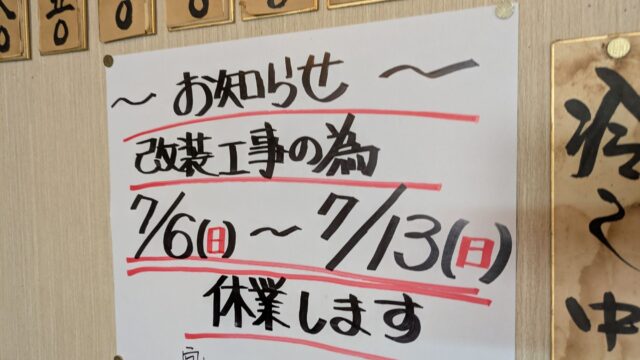 ～お知らせ～
改装工事の為
7/6(日)～7/13(日)
休業します
冷し中